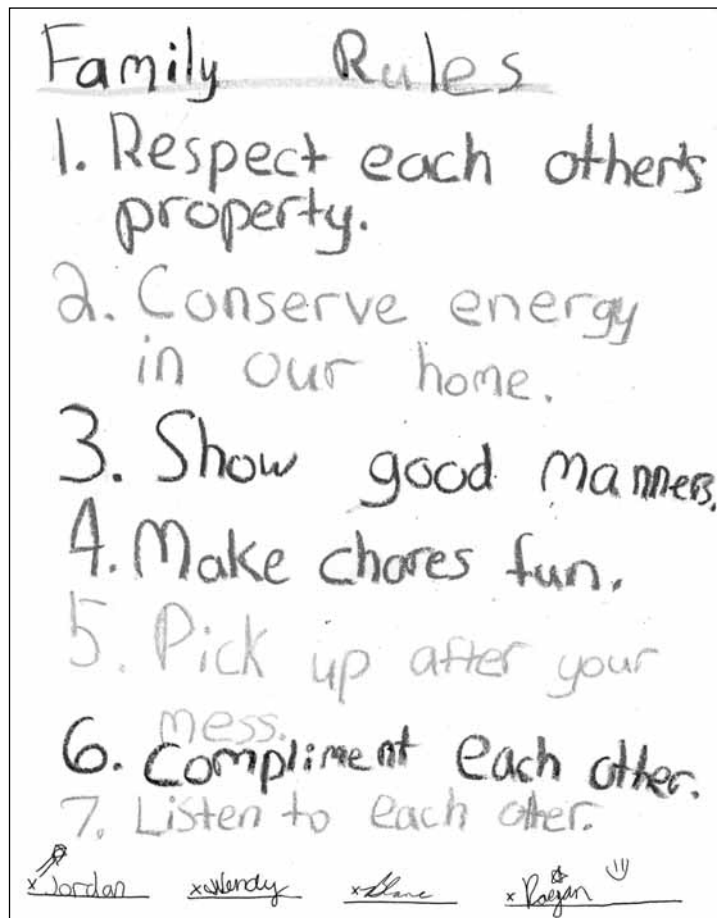 Family Rules
1. Respect each other's
property.
2. Conserve energy
in our home.
3. Show good manners.
4. Make chores fun.
5. Pick up after your
mess.
6. Compliment each other.
7. Listen to each other.
x Jordan x Wendy x Blane x Raegan